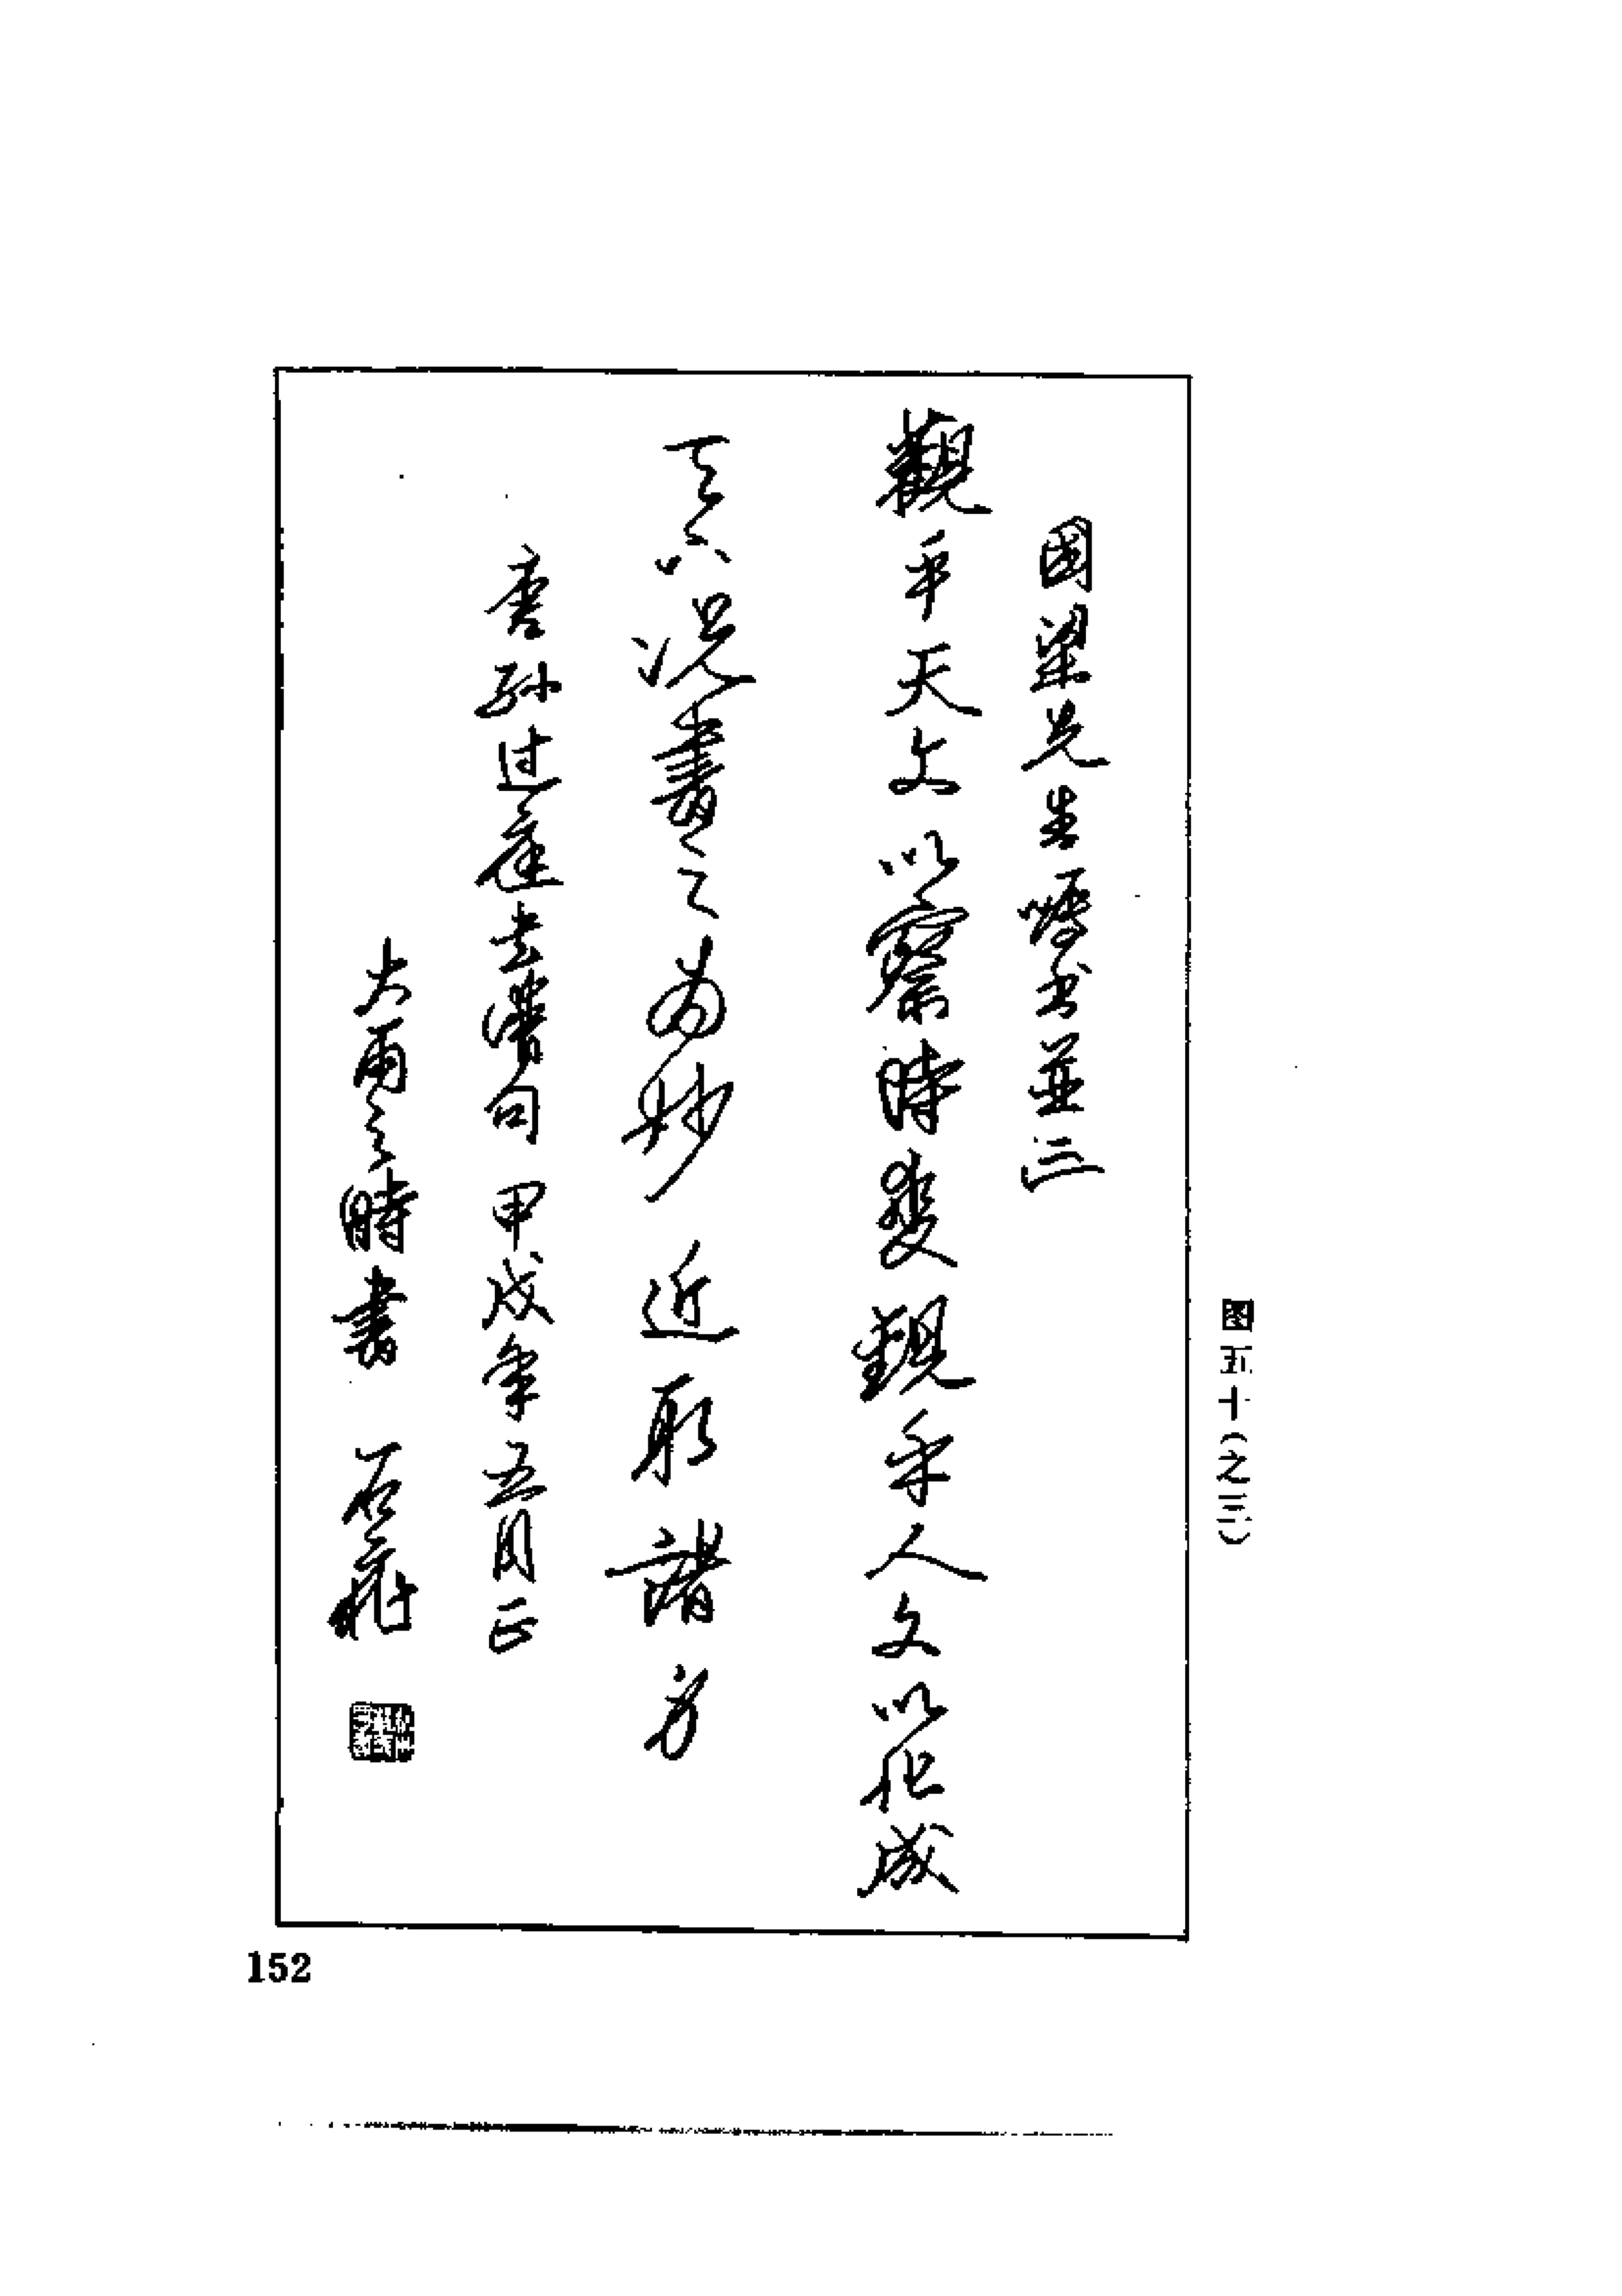 國梁兄生囑书並正
觀乎天文以察時變觀乎人文以化成
天下况書之为妙近取諸身
唐孙过庭书谱句甲戌年五月正
大雨之時書 石
图五十(之三)
152